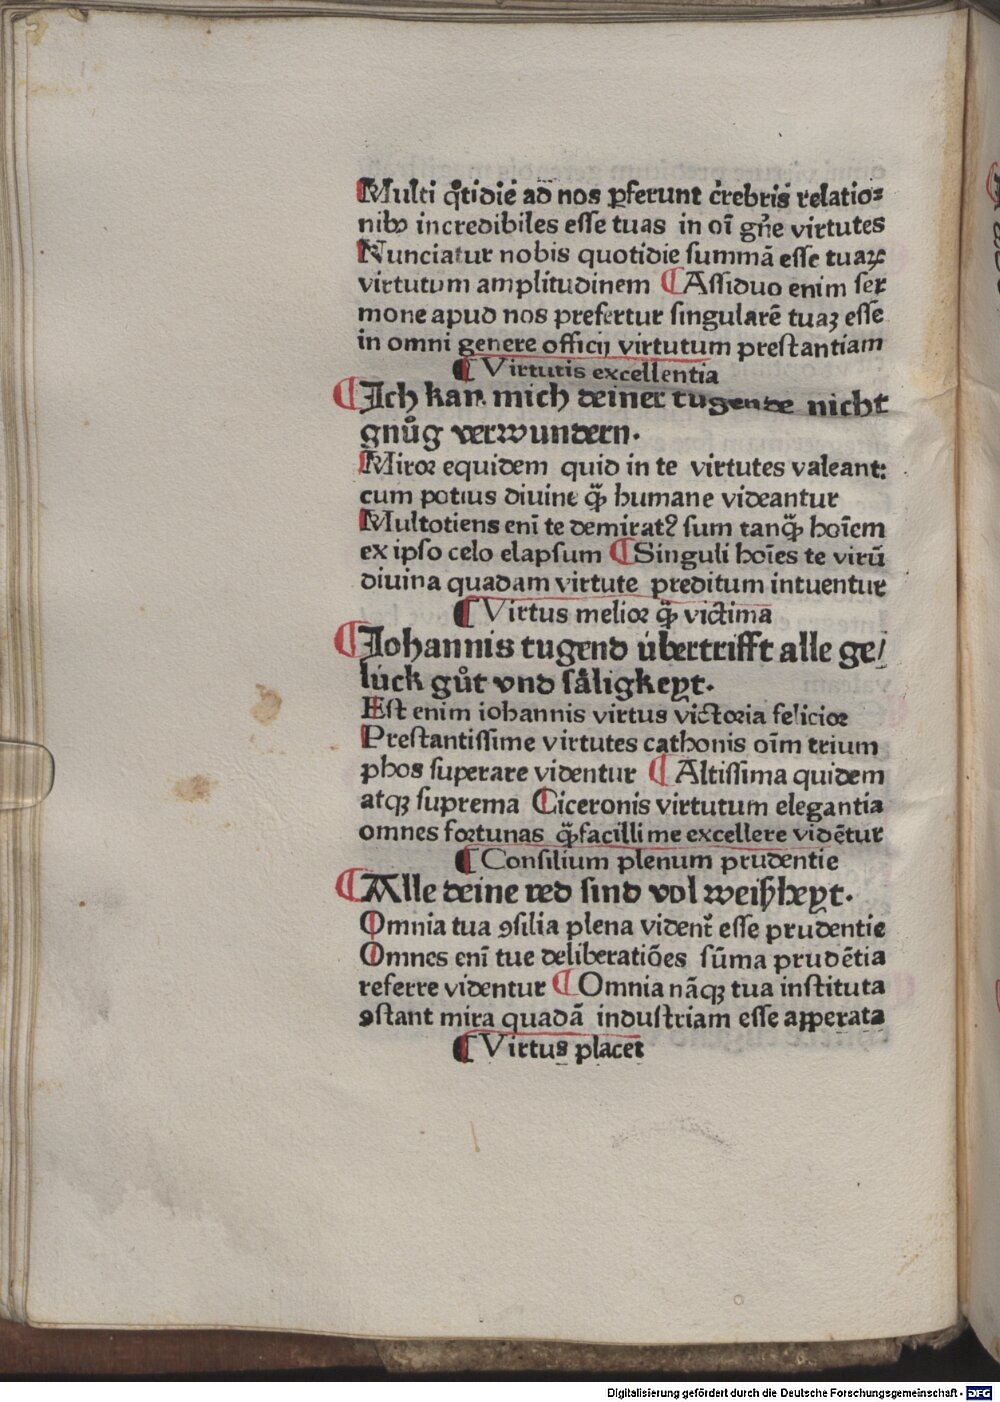 Multi q̊tidiē ad nos ꝑferunt c̄rebris relatio⸗
nibꝰ incredibiles esse tuas in oī gn̄e virtutes
Nunciatur nobis quotidie summā esse tuaꝝ
virtutum amplitudinem ¶ Assiduo enim ser
mone apud nos prefertur singularē tuaꝫ esse
in omni genere officij virtutum prestantiam
¶ Virtutis excellentia
¶ Ich kan mich deiner tugende nicht
gnůg verwundern.
Miror equidem quid in te virtutes valeant:
cum potius diuine q̃ꝫ humane videantur
Multotiens enī te demiratꝰ sum tanq̃ꝫ hoīem
ex ipso celo elapsum ¶ Singuli hoīes te virū
diuina quadam virtute preditum intuentur
¶ Virtus melior q̃ꝫ victima
¶ Johannis tugend übertrifft alle ge/
lück gůt vnd sålIgkeyt.
Est enim iohannis virtus victoria felicior
Prestantissime virtutes cathonis oīm trium
phos superare videntur ¶ Altissima quidem
atqꝫ suprema Ciceronis virtutum elegantia
omnes fortunas q̃ꝫfacillime excellere vidētur
¶ Consilium plenum prudentie
¶ Alle deine red sind vol weißheyt.
Omnia tua ꝯsilia plena vident᷑ esse prudentie
Omnes enī tue deliberatiōes sūma prudētia
referre videntur ¶ Omnia nāqꝫ tua instituta
ꝯstant mira quadā industriam esse aꝑperata
¶ Virtus placet
Digitalisierung gefördert durch die Deutsche Forschungsgemeinschaft - DFG